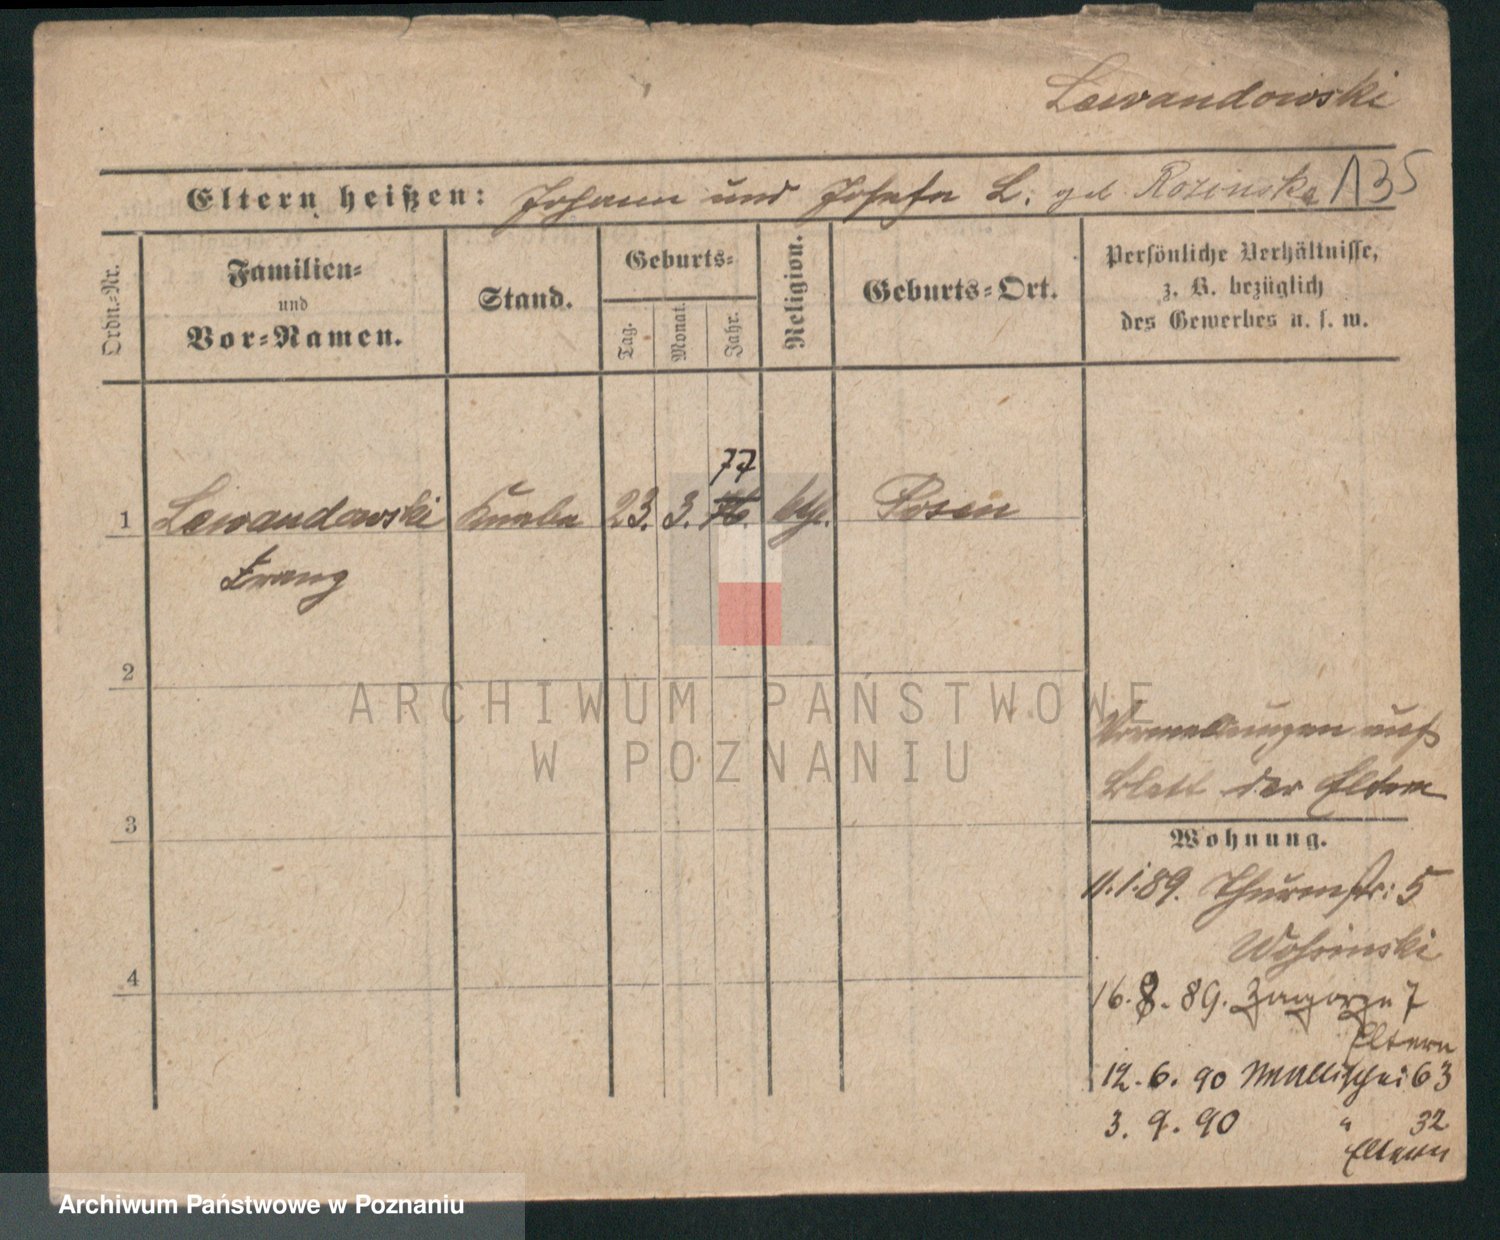 Lewandowski
Eltern heißen: Johann und Josefa L. geb Rozenska 135
Ordn.=Nr.
Familien=
und
Vor=Namen.
Stand.
Geburts=
Tag.
Monat.
Jahr.
Religion.
Geburts=Ort.
Persönliche Verhältnisse,
z. B. bezüglich
des Gewerbes u. s. w.
77
1 Lewandowski Knabe 23. 3. 76. kth. Posen
Franz
2
3
4
Vermeldungen auf
Blatt der Eltern
Wohnung.
11.1.89. Thurmstr: 5
16.8.89. Zagorze 7
Eltern
12.6.90 Wallischei 63
3.9.90 " 32
Eltern
ARCHIWUM PAŃSTWOWE
W POZNANIU
Archiwum Państwowe w Poznaniu